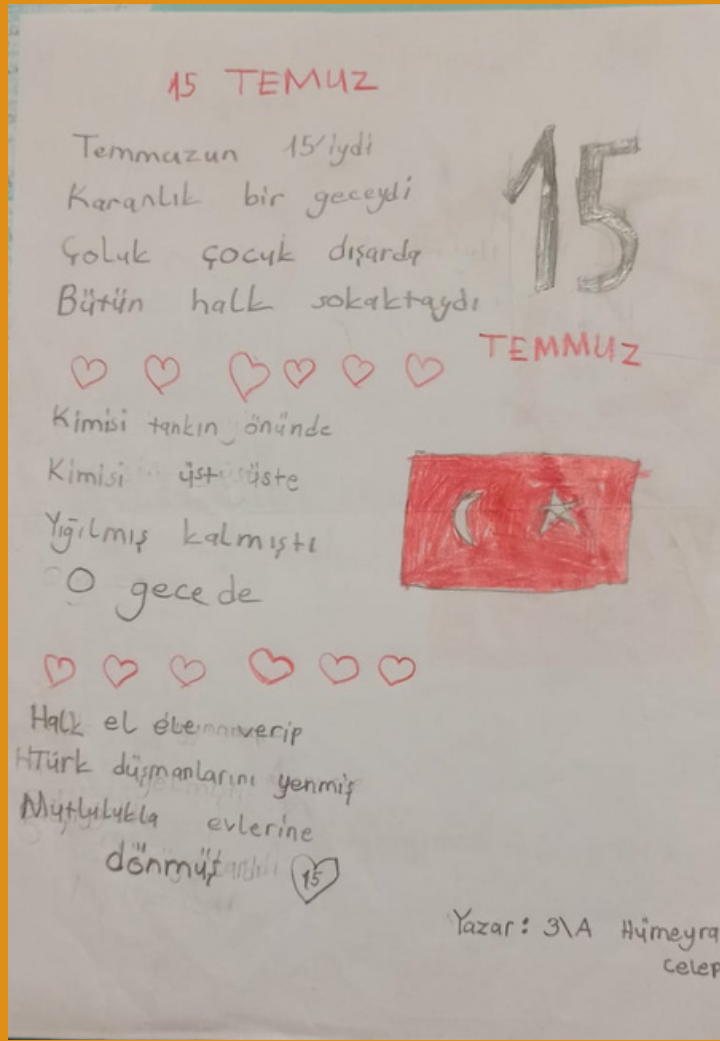 15 TEMUZ
Temmuzun 15'iydi
Karanlık bir geceydi
Çoluk çocuk dışarda
Bütün halk sokaktaydı
15
TEMMUZ
Kimisi tankın önünde
Kimisi üst üste
Yığılmış kalmıştı
O gece de
Halk el ele verip
Türk düşmanlarını yenmiş
Mutlulukla evlerine
dönmüş
15
Yazar: 3\A Hümeyra
Celep